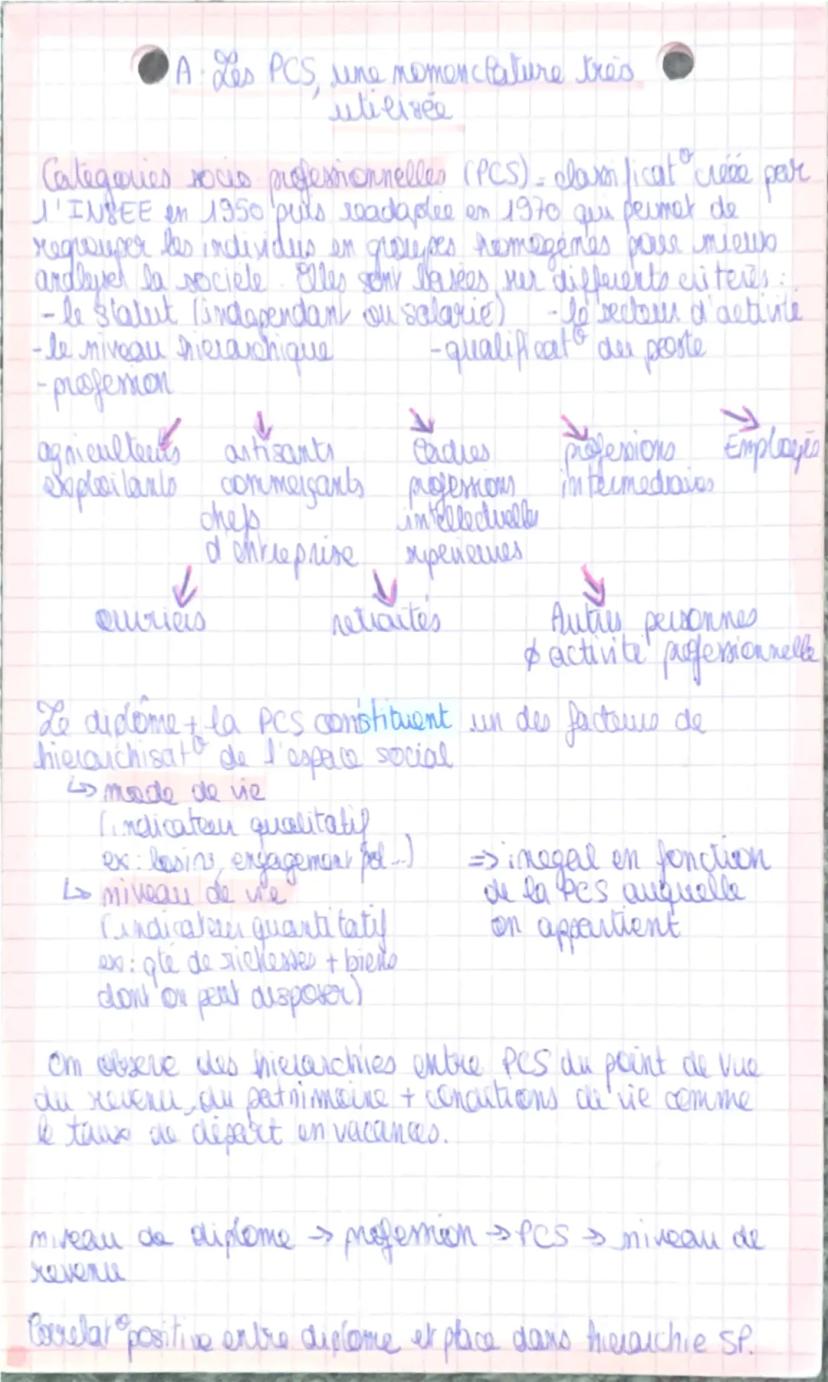 A. Les PCS, une nomenclature très
utilisée
Catégories socio professionnelles (PCS) = classificat° créée par
l'INSEE en 1950 puis readaptée en 1970 qui permet de
regrouper les individus en groupes homogènes pour mieux
analyser la société. Elles sont basées sur differents critères :
- le statut (independant ou salarié) - le secteur d'activité
- le niveau hierarchique - qualificat° du poste
- profession
agriculteurs artisants Cadres professions Employés
exploitants commerçants professions intermediaires
chefs intellectuelle
d'entreprise superieures
ouvriers retraités Autres personnes
∅ activité professionnelle
Le diplôme + la PCS constituent un des facteurs de
hierarchisat° de l'espace social
↳ mode de vie
(indicateur qualitatif
ex : loisirs, engagement pol...) => inegal en fonction
↳ niveau de vie de la PCS auquelle
(indicateur quantitatif on appartient
ex : qté de richesses + biens
dont on peut disposer)
On observe des hierarchies entre PCS du point de vue
du revenu, du patrimoine + conditions de vie comme
le taux de départ en vacances.
niveau de diplome → profession → PCS → niveau de
revenu
Correlat° positive entre diplome et place dans hierarchie SP.